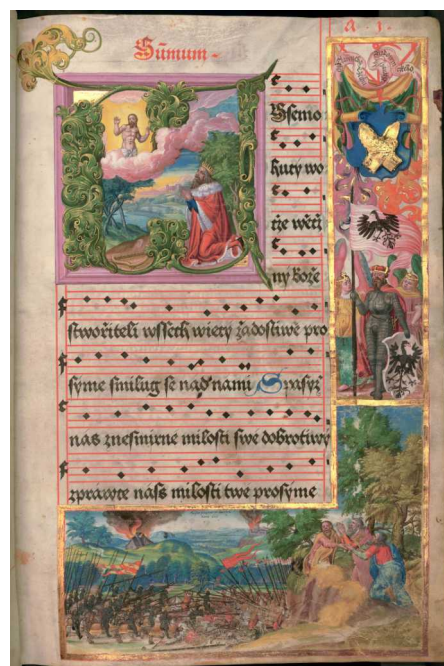 A 1.
Sum̄um
Wsemo
huty wo
tče wěči
ny bože
stwořiteli wssech wiety žadostiwě pro
syme smilug se nad nami Spasyž
nas znesmirne milosti swe dobrotiwy
zprawce nass milosti twe prosyme